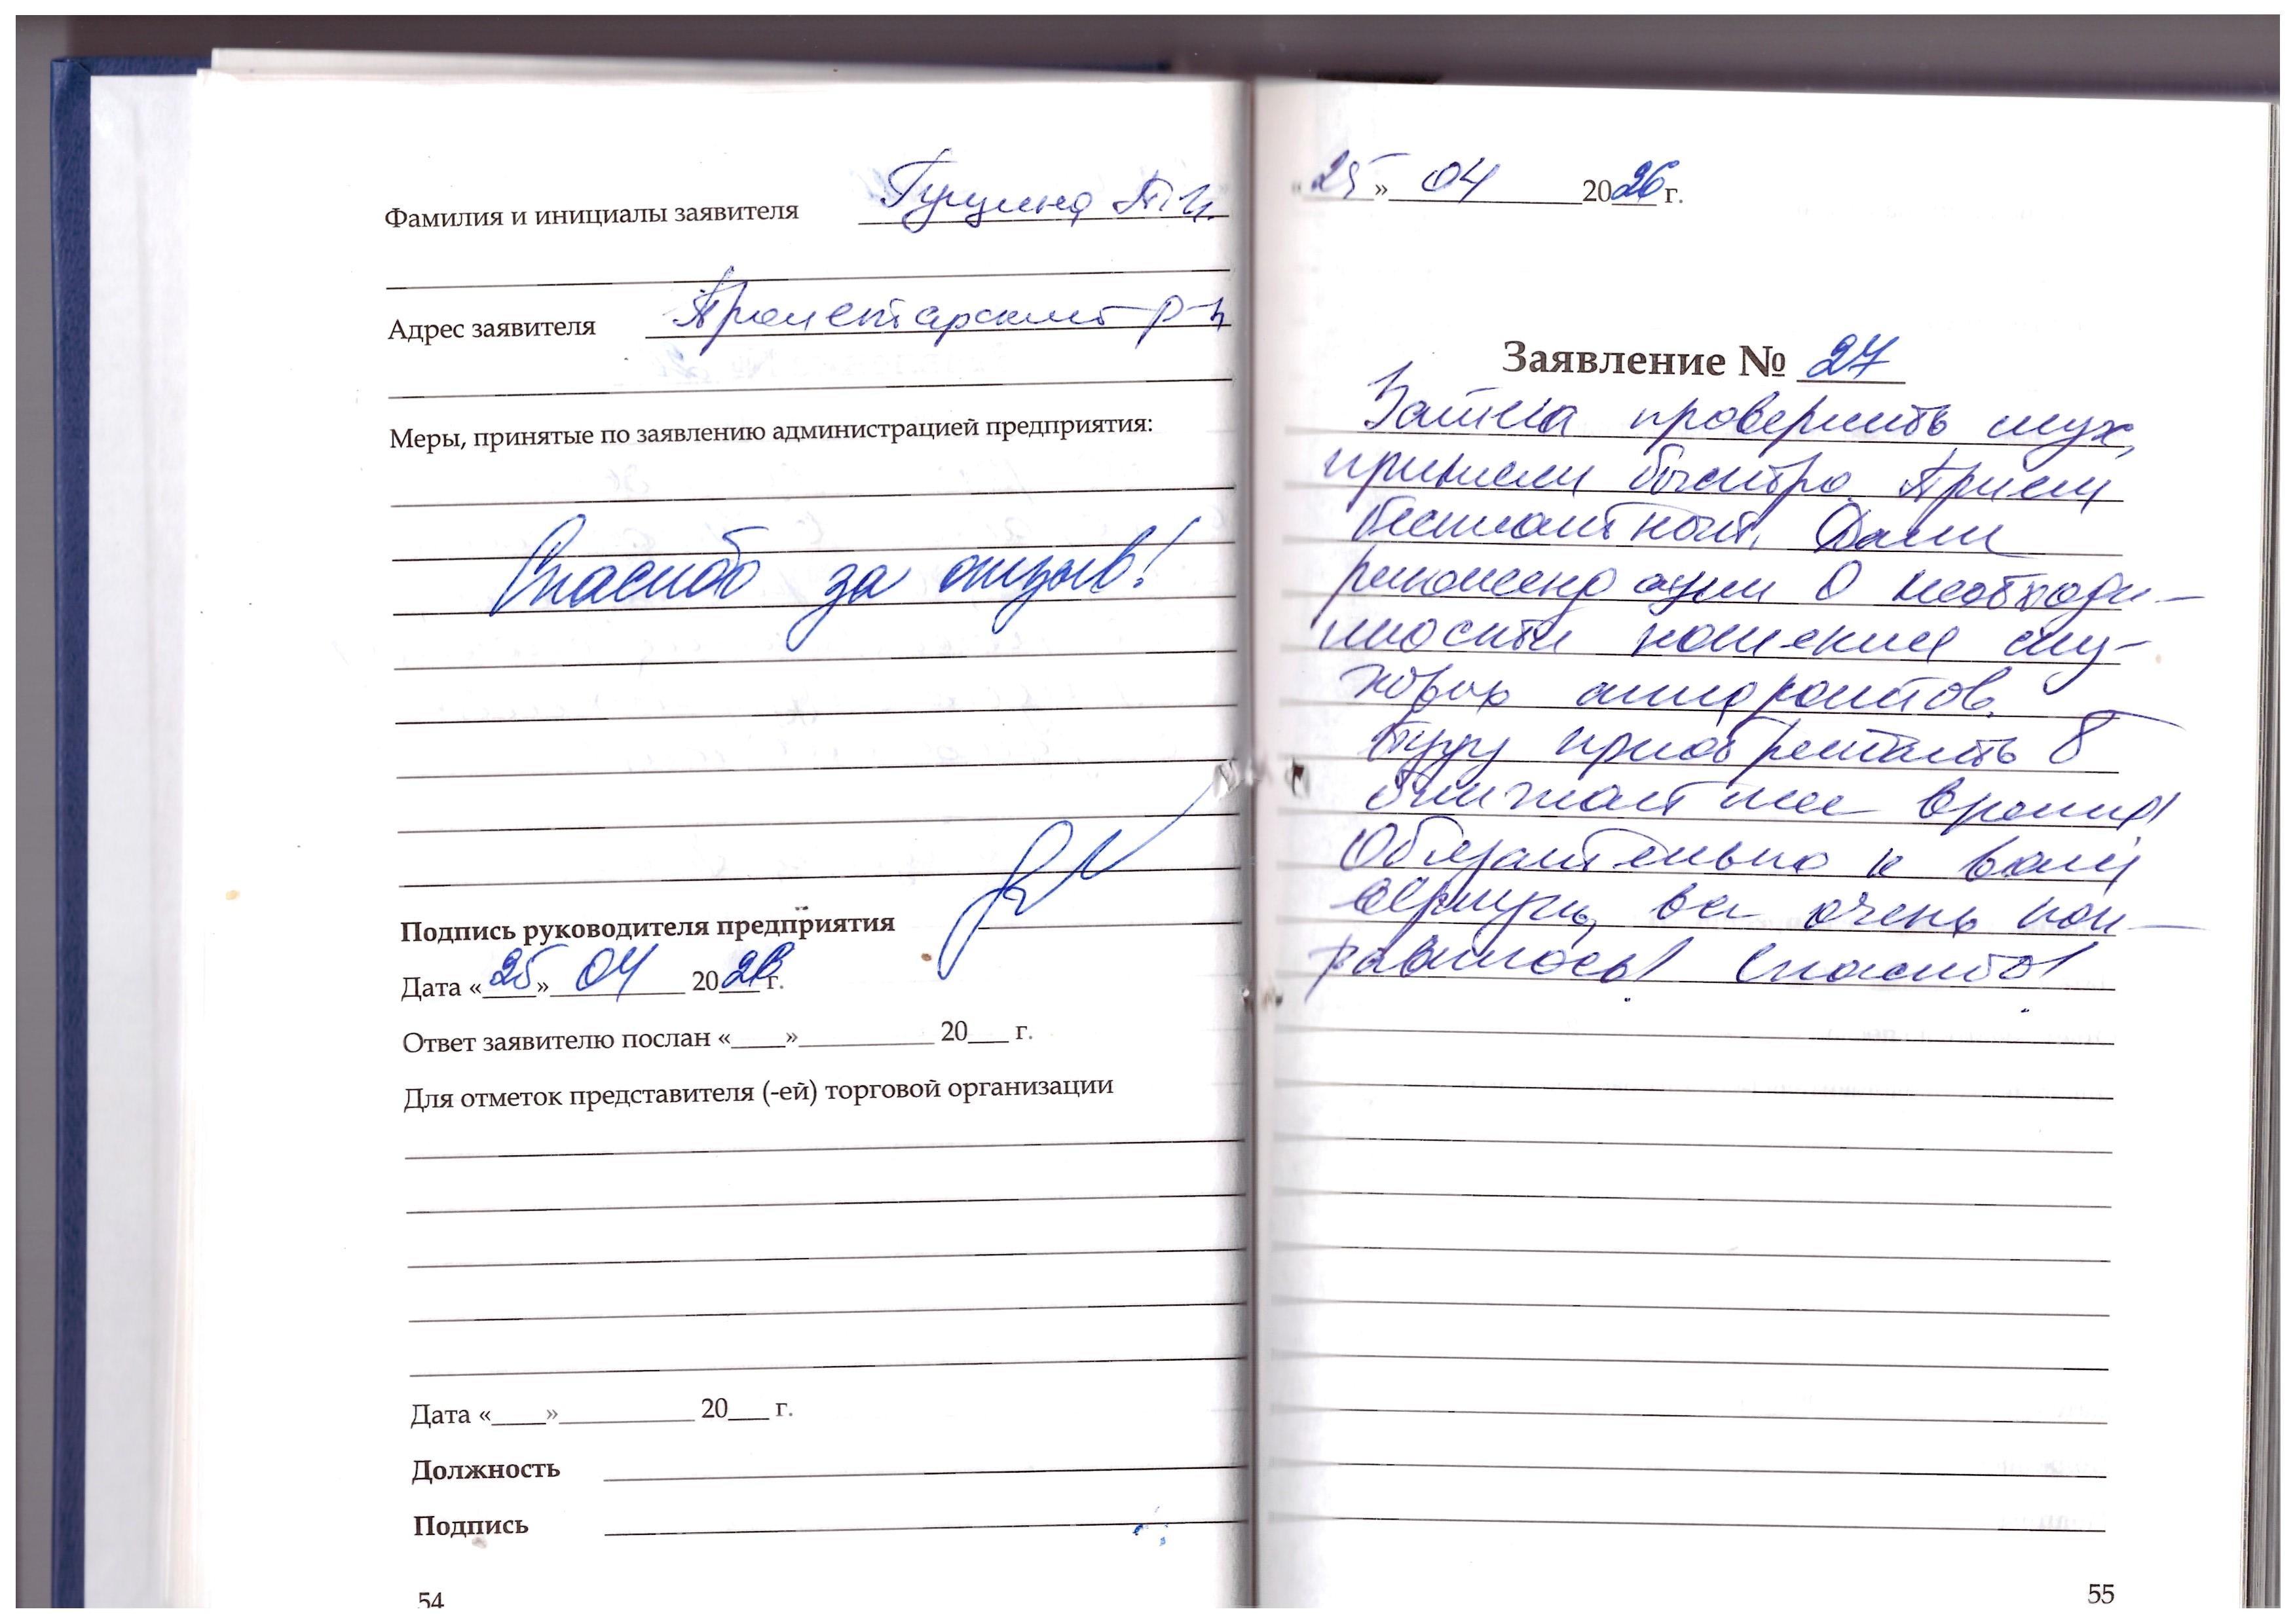 Фамилия и инициалы заявителя Гущина Т.И.
Адрес заявителя Пролетарский р-н
Меры, принятые по заявлению администрацией предприятия:
Спасибо за отзыв!
Подпись руководителя предприятия
Дата «25» 04 20 г.
Ответ заявителю послан «____»__________ 20___ г.
Для отметок представителя (-ей) торговой организации
Дата «____»__________ 20___ г.
Должность
Подпись
54
«25» 04 2026 г.
Заявление № 27
Зашла проверить слух,
приняли быстро. Прием
бесплатный. Дали
рекомендации о необходи-
мости ношения слу-
ховых аппаратов.
Буду приобретать в
ближайшее время!
Обязательно к вам
вернусь, все очень пон-
равилось! Спасибо!
55